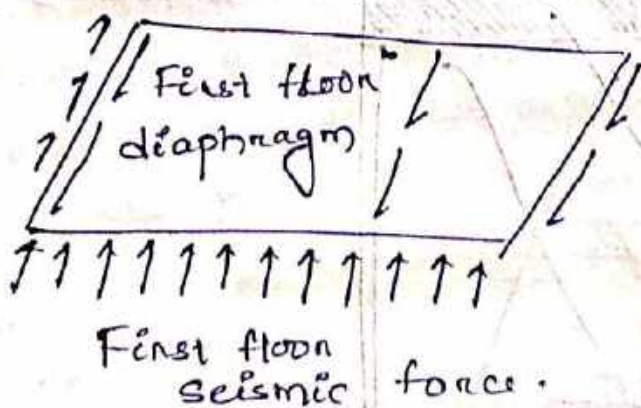 First floor
diaphragm
First floor
seismic force.